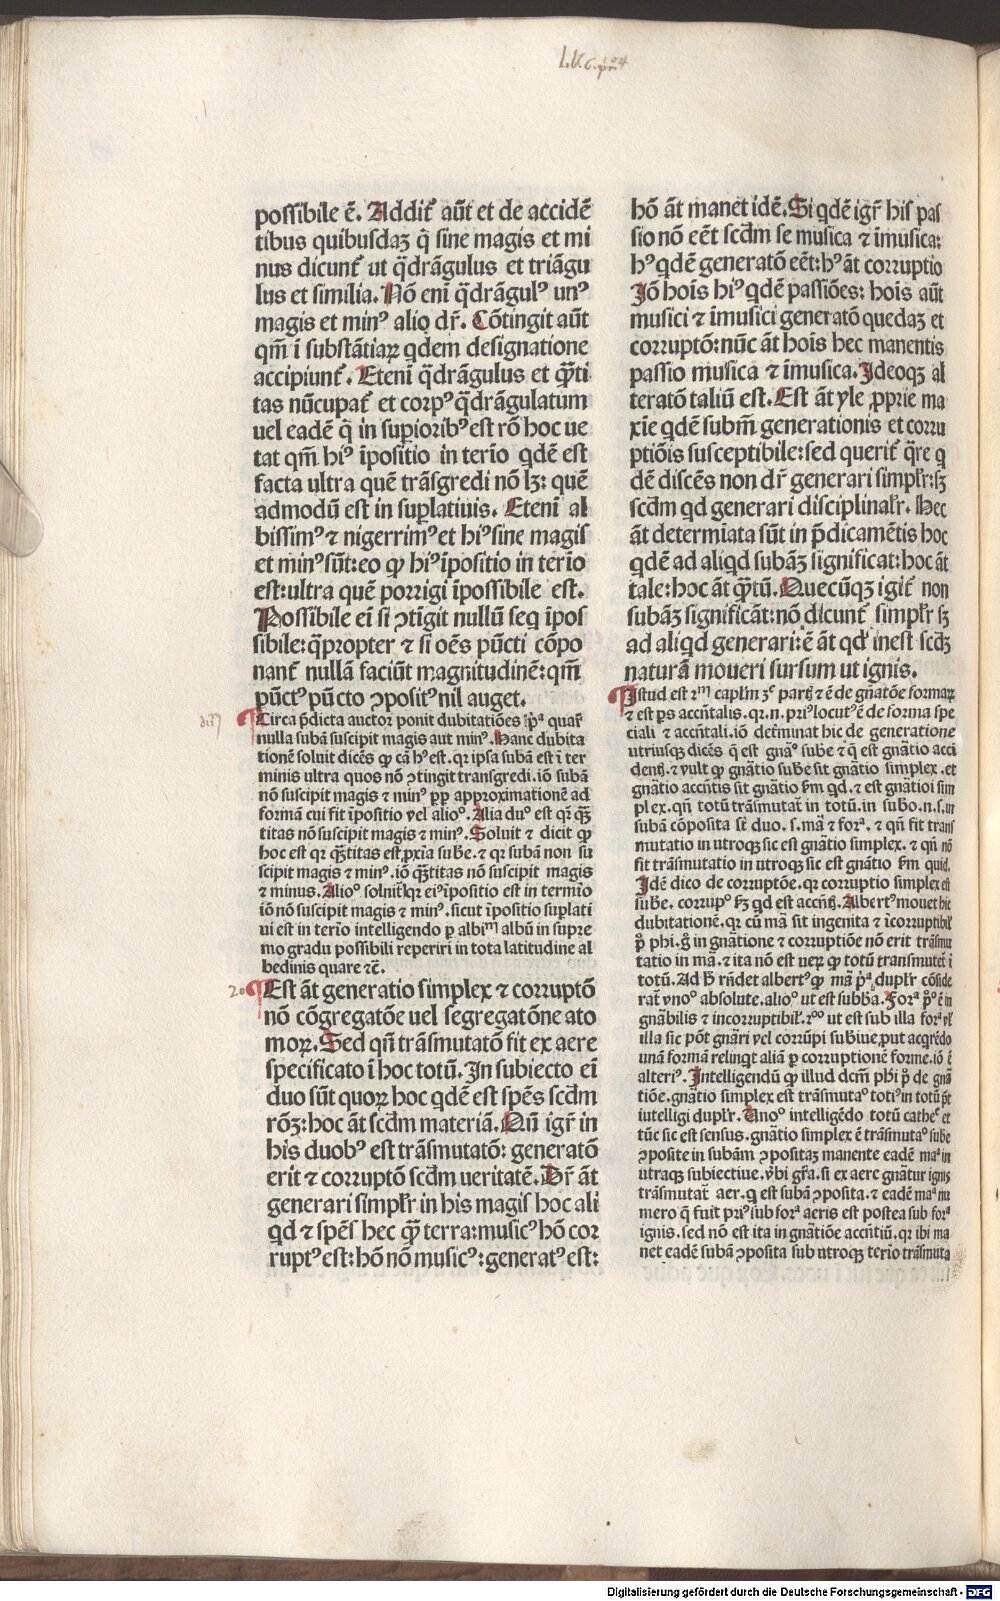 possibile ē. Addit᷑ aūt et de accidē
tibus quibusdaꝫ q̄ sine magis et mi
nus dicunt᷑ ut q̄drāgulus et triāgu
lus et similia. Nō enī q̄drāgulꝰ unꝰ
magis et minꝰ alio dr̄. Cōtingit aūt
qm̄ ī substātiaꝝ qdem designatione
accipiunt᷑. Etenī q̄drāgulus et q̄̄ti
tas nūcupat᷑ et corpꝰ q̄drāgulatum
uel eadē q̄ in supiorib⁹ est rō hoc ue
tat qm̄ hiꝰ īpositio in teri̅o qdē est
facta ultra quē trāsgredi nō lꝫ: quē
admodū est in suplatiuis. Etenī al
bissimꝰ ⁊ nigerrimꝰ et hiꝰ sine magis
et minꝰ sūt: eo ꝙ hiꝰ īpositio in teri̅o
est: ultra quē porrigi īpossibile est.
Possibile ei̅ si ↄtīgit nullū seq īpos
sibile: q̄propter ⁊ si oēs pūcti cōpo
nant᷑ nullā faciūt magnitudinē: qm̄
pūctꝰ pūcto ↄpositꝰ nil auget.
Circa p̄dicta auctor ponit dubitatiōes pͣ quaꝝ
nulla subā suscipit magis aut minꝰ. Hanc dubita
tionē soluit dicēs ꝙ cā hꝰ est. qr ipsa subā est ī ter
minis ultra quos nō ↄtingit transgredi. iō subā
nō suscipit magis ⁊ minꝰ ꝓp approximationē ad
formā cui fit īpositio vel alioº. Alia duº est qr q̄̄
titas nō suscipit magis ⁊ minꝰ. Soluit ⁊ dicit ꝙ
hoc est qr q̄̄titas est ꝓxīa sube. ⁊ qr subā non su
scipit magis ⁊ minꝰ. iō q̄̄titas nō suscipit magis
⁊ minus. Alioº soluit᷑ qr eiꝰ īpositio est in termīo
iō nō suscipit magis ⁊ minꝰ. sicut īpositio suplati
ui est in teri̅o intelligendo ꝑ albiᵐ albū in supre
mo gradu possibili reperiri in tota latitudine al
bedinis quare ⁊c̄.
20 Est āt generatio simplex ⁊ corruptō
nō cōgregatōe uel segregatōne ato
moꝝ. Sed qn̄ trāsmutatō fit ex aere
specificato ī hoc totū. In subiecto ei̅
duo sūt quoꝝ hoc qdē est spēs scd̄m
rōꝫ: hoc āt scd̄m materiā. Dū igr̄ in
his duobꝰ est trāsmutatō: generatō
erit ⁊ corruptō scd̄m ueritatē. Dr̄ āt
generari simplr̄ in his magis hoc ali
qd ⁊ spēs hec q̄̄ terra: musicꝰ hō cor
ruptꝰ est: hō nō musicꝰ: generatꝰ est:
hō āt manet idē. Si qdē igr̄ hiꝰ pas
sio nō eēt scd̄m se musica ⁊ īmusica:
hꝰ qdē generatō eēt: hꝰ āt corruptio
Iō hoīs hiꝰ qdē passiōes: hoīs aūt
musici ⁊ īmusici generatō quedaꝫ et
corruptō: nūc āt hoīs hec manentis
passio musica ⁊ īmusica. Ideoqꝫ al
teratō taliū est. Est āt yle ꝓprie ma
xīe qdē subm̄ generationis et corru
ptiōis susceptibile: sed querit᷑ q̄re q
dē discēs non dr̄ generari simplr̄: sꝫ
scd̄m qd generari disciplinalr̄. Hec
āt determīata sūt in p̄dicamētis hoc
qdē ad aliqd subāꝫ significat: hoc āt
tale: hoc āt q̄̄tū. Quecūqꝫ igit᷑ non
subāꝫ significāt: nō dicunt᷑ simplr̄ sꝫ
ad aliqd generari: ē āt qd inest scd̄ꝫ
naturā moueri sursum ut ignis.
Istud est 2ᵐ caplm̄ 3ᵉ partꝭ ⁊ ē de gn̄atōe formaꝝ
⁊ est ps accn̄talis. qr. n. priꝰ locutꝰ ē de forma spe
ciali ⁊ accn̄tali. iō det̄minat hic de generatione
utriusqꝫ dicēs q̄ est gnāº sube ⁊ q̄ est gnātio acci
dentꝭ. ⁊ vult ꝙ gnātio sube sit gnātio simplex. et
gnātio accn̄tis sit gnātio fm̄ qd. ⁊ est gnātioi sim
plex. qn̄ totū trāsmutat᷑ in totū. in subo. n. s. in
subā cōposita st̄ duo. s. mā ⁊ forª. ⁊ qn̄ fit trans
mutatio in utroqꝫ sic est gnātio simplex. ⁊ qn̄ nō
fit trāsmutatio in utroqꝫ sic est gnātio fm̄ quid.
Idē dico de corruptōe. qr corruptio simplex est
sube. corrupº fꝫ qd est accn̄tꝭ. Albertꝰ mouet hic
dubitationē. qr cū mā sit ingenita ⁊ īcorruptibil̄
ꝑ phi. g̊ in gnātione ⁊ corruptiōe nō erit trāsmu
tatio in mā. ⁊ ita nō est ueꝝ ꝙ totū transmutet᷑ ī
totū. Ad h̄ rn̄det albertꝰ ꝙ mā pͣ. duplr̄ cōside
rat᷑ vnoº absolute. alioº ut est subb̄a. Forª pº ē in
gnābilis ⁊ incorruptibil̄. 2ºº ut est sub illa forª vl̄
illa sic pōt gnāri vel corrūpi subiue, put acqrēdo
unā formā relinqt aliā ꝑ corruptionē forme. iō ē
alteriꝰ. Intelligendū ꝙ illud dcm̄ phi ꝑ de gnā
tiōe. gnātio simplex est trāsmutaº totiꝰ in totū pt̄
intelligi duplr̄. Unoº intelligēdo totū catheᶜ et
tūc sic est sensus. gnātio simplex ē trāsmutaº sube
ↄposite in subām ↄpositaꝫ manente eadē maª in
utraqꝫ subiectiue. vbi gr̄a. si ex aere gnātur ignis
trāsmutat᷑ aer. q est subā ↄposita. ⁊ eadē maª nu
mero q̄ fuit priꝰ sub forª aeris est postea sub forª
ignis. sed nō est ita in gnātiōe accn̄tiū. qr ibi ma
net eadē subā ↄposita sub utroqꝫ teri̅o trāsmuta
Digitalisierung gefördert durch die Deutsche Forschungsgemeinschaft - DFG